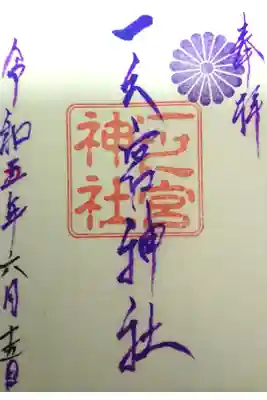 奉拝
一之宮神社
一之宮神社
令和五年六月十五日